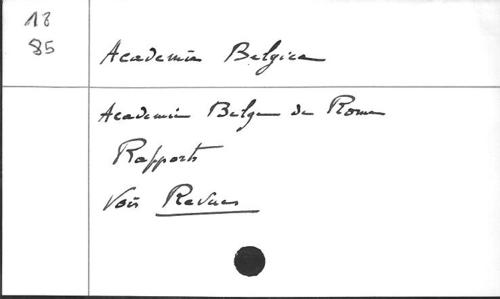 18
85
Academia Belgica
Academia Belge de Rome
Rapports
Voir Revues